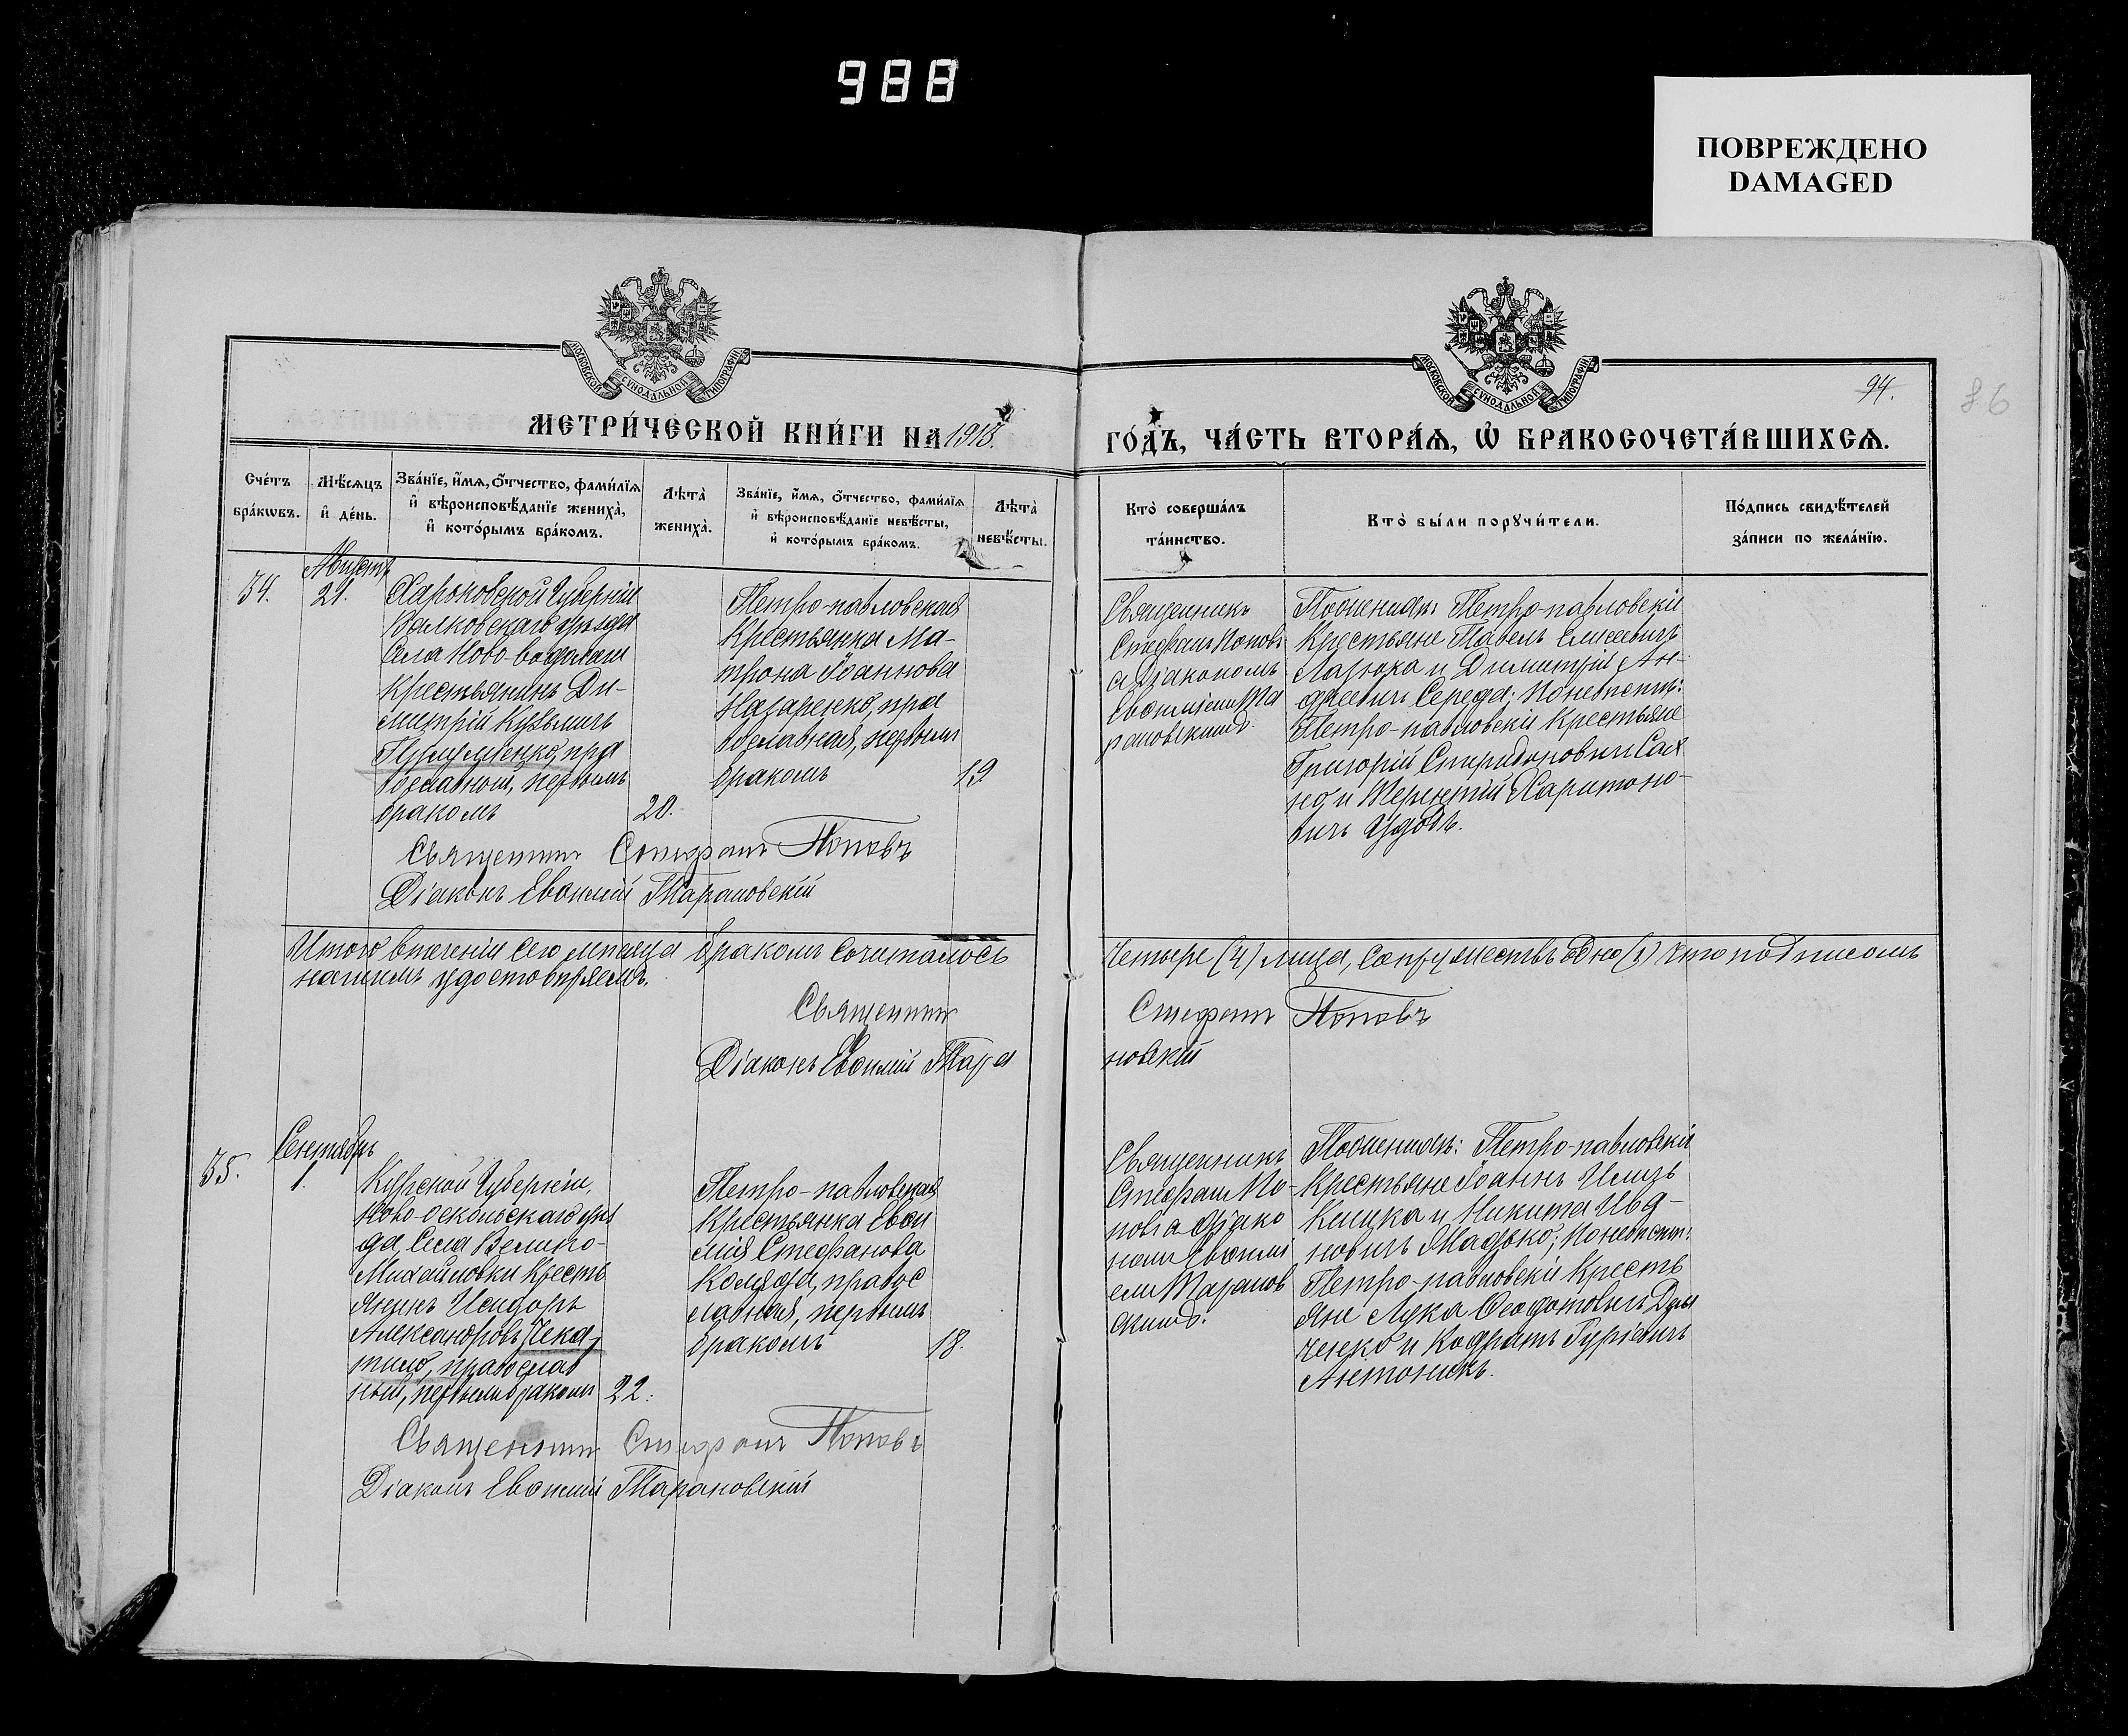 988
ПОВРЕЖДЕНО
DAMAGED
МОСКОВСКОЙ СУНОДАЛЬНОЙ ТИПОГРАФІИ
МОСКОВСКОЙ СУНОДАЛЬНОЙ ТИПОГРАФІИ
94.
86
МЕТРИ́ЧЕСКОЙ КНИ́ГИ НА 1918
ГО́ДЪ, ЧА́СТЬ ВТОРА́Ѧ, Ѡ҆ БРАКОСОЧЕТА́ВШИХСѦ.
Сче́тъ бра́кѡвъ.
Мѣ́сѧцъ и҆ де́нь.
Зва́нїе, и҆́мѧ, ѻ҆́тчество, фами́лїѧ и҆ вѣроисповѣ́данїе жениха̀, и҆ кото́рымъ бра́комъ.
Лѣ́та̀ жениха̀.
Зва́нїе, и҆́мѧ, ѻ҆́тчество, фами́лїѧ и҆ вѣроисповѣ́данїе невѣ́сты, и҆ кото́рымъ бра́комъ.
Лѣ́та̀ невѣ́сты.
Кто̀ соверша́лъ та́инство.
Кто̀ бы́ли порꙋчи́тели.
По́дпись свидѣ́телей за́писи по жела́нїю.
Августъ
34.
21.
Харьковской Губерніи
Валковскаго уѣзда
Села Ново-Водолаги
Крестьянинъ Ди-
митрій Кузьмичъ
пра
вославный, первымъ
бракомъ
20.
Петро-павловская
Крестьянка Ма-
трона Іоаннова
Назаренко, пра
вославная, первым
бракомъ
19.
Священникъ
Стефанъ Поповъ
с Діакономъ
Евфиміемъ Та
рановскимъ.
По женихѣ: Петро-павловскіе
Крестьяне Павелъ Елисеевичъ
Лазюка и Димитрій Ан-
дреевичъ Середа; По невѣстѣ:
Петро-павловскіе Крестьяне
Григорій Спиридоновичъ Сая
но и Терентій Харитоно-
вичъ Удодъ.
Священникъ Стефанъ Поповъ
Діаконъ Евфимій Тарановскій
Итого втеченіи сего мѣсяца бракомъ сочеталось
Четыре (4) лица, супружествъ одно (1) что подписомъ
нашимъ удостовѣряемъ.
Священникъ
Стефанъ Поповъ
Діаконъ Евфимій Тара
новскій
Сентябрь
35.
1.
Курской Губерніи,
Ново-оскольскаго уѣз
да, Села Велико-
Михайловки Кресть
янинъ Исидоръ
Александровъ Чека
тило, православ
ный, первымъ бракомъ
22.
Петро-павловская
Крестьянка Евфи
мія Стефанова
Коляда, правос
лавная, первымъ
бракомъ
18.
Священникъ
Стефанъ По-
повъ с Діако
номъ Евфимі
емъ Таранов
скимъ.
По женихѣ: Петро-павловскіе
Крестьяне Іоаннъ
и Никита Ива-
новичъ По невѣстѣ:
Петро-павловскіе Кресть
яне Лука Феодотовичъ
ченко и Кодратъ Гурьевичъ
Антоникъ.
Священникъ Стефанъ Поповъ
Діаконъ Евфимій Тарановскій